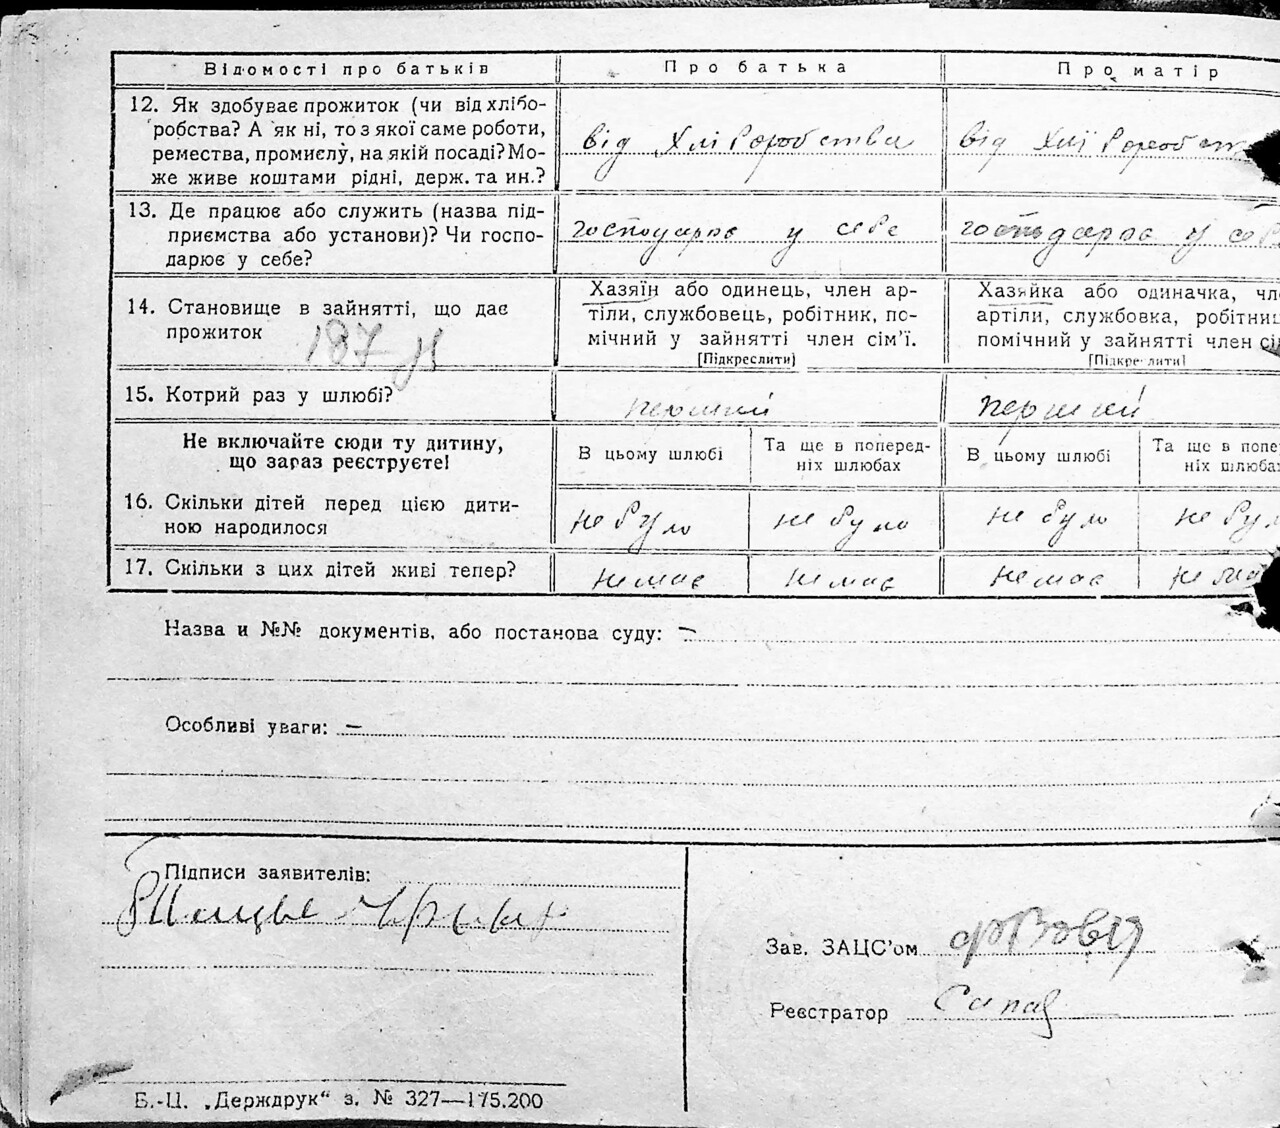 Відомості про батьків
Про батька
Про матір
12. Як здобуває прожиток (чи від хлібо-
робства? А як ні, то з якої саме роботи,
ремества, промислу, на якій посаді? Мо-
же живе коштами рідні, держ. та ин.?
від Хліборобства
від Хліборобст
13. Де працює або служить (назва під-
приємства або установи)? Чи госпо-
дарює у себе?
господарює у себе
господарює у себе
14. Становище в зайнятті, що дає
прожиток
187
Хазяїн або одинець, член ар-
тіли, службовець, робітник, по-
мічний у зайнятті член сім'ї.
[Підкреслити]
Хазяйка або одиначка, чле
артіли, службовка, робітниц
помічний у зайнятті член сі
[Підкреслити]
15. Котрий раз у шлюбі?
перший
перший
Не включайте сюди ту дитину,
що зараз реєструєте!
В цьому шлюбі
Та ще в поперед-
ніх шлюбах
В цьому шлюбі
Та ще в попе
ніх шлюба
16. Скільки дітей перед цією дити-
ною народилося
не було
не було
не було
не бул
17. Скільки з цих дітей живі тепер?
немає
немає
немає
немає
Назва и №№ документів, або постанова суду: —
Особливі уваги: —
Підписи заявителів:
Зав. ЗАЦС'ом
Реєстратор
Б.-Ц. „Держдрук“ з. № 327—175.200